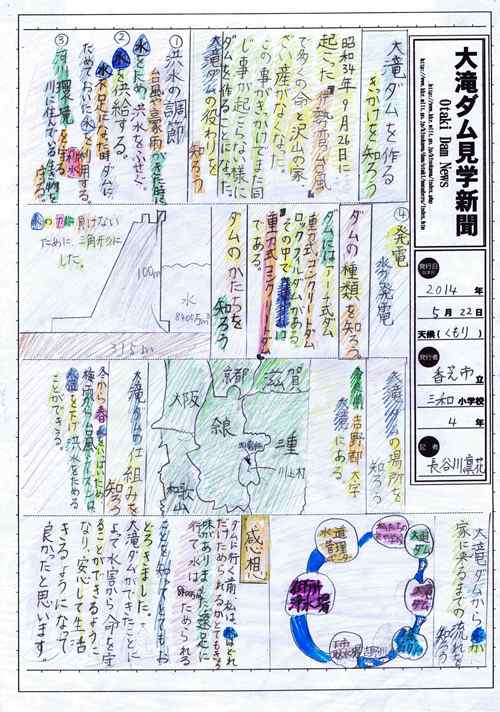 大滝ダム見学新聞
Otaki Dam News
発行日
2014 年
5月22日
天候(くもり)
発行者
香芝市立
三和小学校
4年
記者
長谷川凛花
大滝ダムを作る
きっかけを知ろう
昭和34年9月26日に
起こった伊勢湾台風
で多くの命と沢山の家、
ざい産がなくなり、
この事がきっかけで、また同
じ事が起こらない様に
ダムを作ることにしました。
大滝ダムの役わりを
知ろう
①洪水の調節
台風や豪雨がきた時に
水をため、洪水をふせぐ。
②水を供給する。
水不足になった時ダムに
ためておいた水を利用する。
③河川環境を守る
川に住んでいる生物を
守る。
④発電
水力発電
ダムの種類を知ろう
ダムにはアーチ式ダム
重力式コンクリートダム
ロックフィルダムがある。
その中で大滝ダムは
重力式コンクリートダム
である。
ダムのかたちを
知ろう
100m
水
8400万m³
315m
水の力に負けない
ために、三角形に
した。
大滝ダムの場所を
知ろう
奈良県吉野郡大字
大滝にある
滋賀
京都
大阪
奈良
三重
川上村
和歌山
大滝ダムの仕組みを
知ろう
冬から春水をいっぱいため
梅雨や台風のシーズンは
水位を下げ洪水をためる
ことができる。
家に来るまでの流れを
知ろう
大滝ダム
水道管理センター
御所浄水場
吉野川
感想
ダムに行く前、私は、水はどれ
だけためられるかとてもきょう
味がありました。遠足に
行って水は8400万m³ためられる
ことを知ってとてもお
どろきました。
大滝ダムができたことに
よって水害から命を守
ることができるように
なり、安心して生活
できるようになって
良かったと思います。